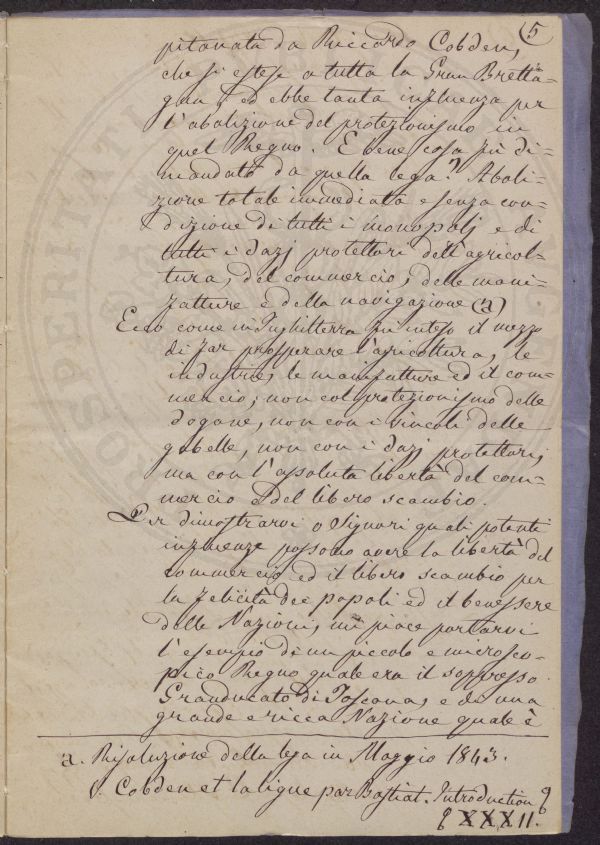 5
pitanata da Riccardo Cobden,
che si estese a tutta la Gran Bretta=
gna, ed ebbe tanta influenza per
l'abolizione del protezionismo in
quel Regno. Ebene cosa fù di=
mandato da quella lega? Aboli=
zione totale immediata e senza con=
dizione di tutti i monopolj e di
tutti i dazj protettori dell'agricol=
tura, del commercio, delle mani=
fatture e della navigazione (a)
Ecco come in Inghilterra fu inteso il mezzo
di far prosperare l'agricoltura, le
industrie, le manifatture ed il com=
mercio, non col protezionismo delle
dogane, non con i vincoli delle
gabelle, non con i dazj protettori,
ma con l'assoluta libertà del com=
mercio e del libero scambio.
Per dimostrarvi o Signori quali potenti
influenze possono avere la libertà del
commercio ed il libero scambio per
la felicità dei popoli ed il benessere
delle Nazioni, mi piace portarvi
l'esempio di un piccolo e microsco=
pico Regno quale era il soppresso
Granducato di Toscana, e di una
grande e ricca Nazione quale è
a. Risoluzione della lega in Maggio 1843.
V. Cobden et la ligue par Bastiat. Introduction
XXXII.